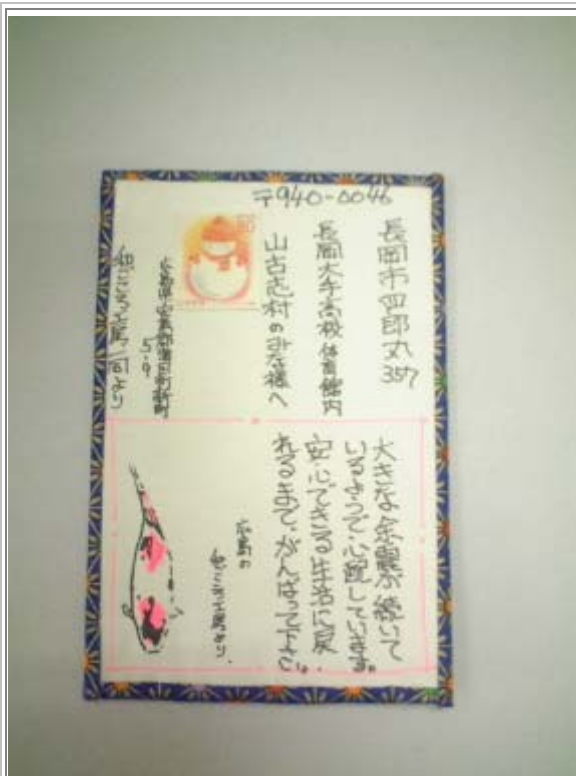 〒940-0046
長岡市四郎丸357
長岡大手高校体育館内
山古志村のみな様へ
5-9
一同より
大きな余震が続いて
いるようで心配しています。
安心できる生活に戻
れるまで、がんばって下さい。
広島の
より。